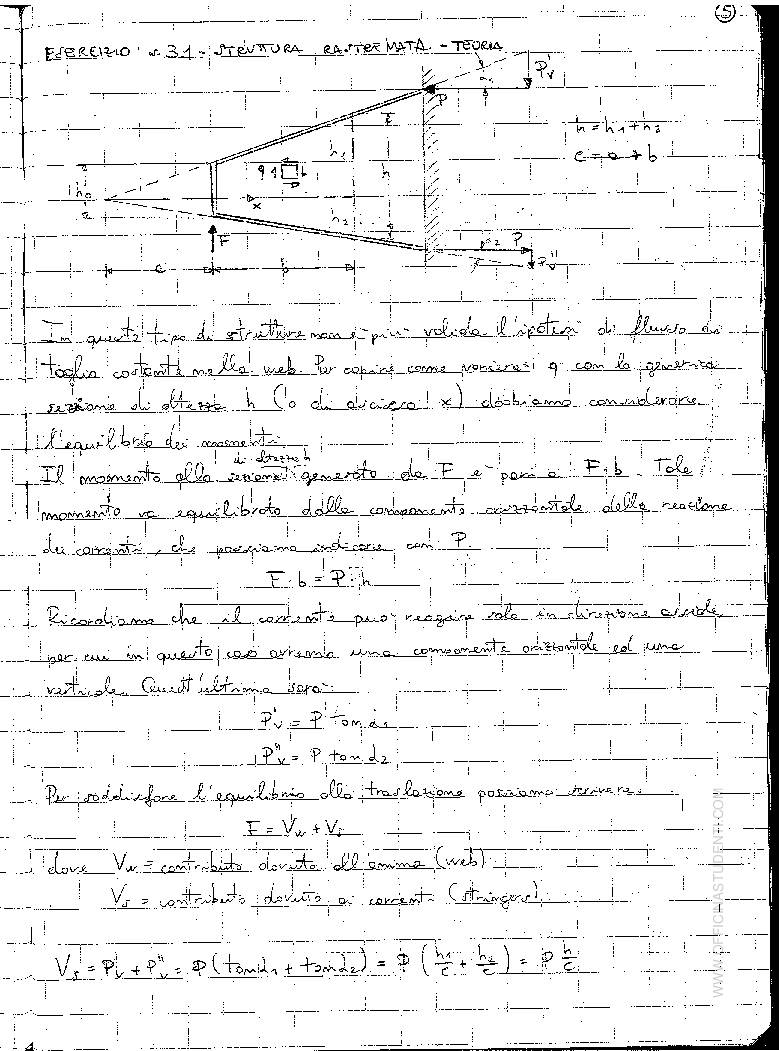 5
ESERCIZIO n.31 - STRUTTURA RASTREMATA - TEORIA
P'v
P
h = h1 + h2
c = a + b
h1
h
h0
q
x
h2
F
α2 P
P"v
c b
In questo tipo di strutture non è più valida l'ipotesi di flusso di
taglio costante nelle web. Per capire come varierà q con la generica
sezione di altezza h (o di ascissa x) dobbiamo considerare
l'equilibrio dei momenti.
di altezza h
Il momento alla sezione generato da F è pari a F·b. Tale
momento va equilibrato dalla componente orizzontale della reazione
dei correnti, che possiamo indicare con P.
F·b = P·h
Ricordiamo che il corrente può reagire solo in direzione assiale,
per cui in questo caso avremo una componente orizzontale ed una
verticale. Quest'ultima sarà:
P'v = P tan α1
P"v = P tan α2
Per soddisfare l'equilibrio alla traslazione possiamo scrivere:
F = Vw + Vs
dove Vw = contributo dovuto all'anima (web)
Vs = contributo dovuto ai correnti (stringers)
Vs = P'v + P"v = P (tan α1 + tan α2) = P (h1/c + h2/c) = P h/c
WWW.OFFICINASTUDENTI.COM